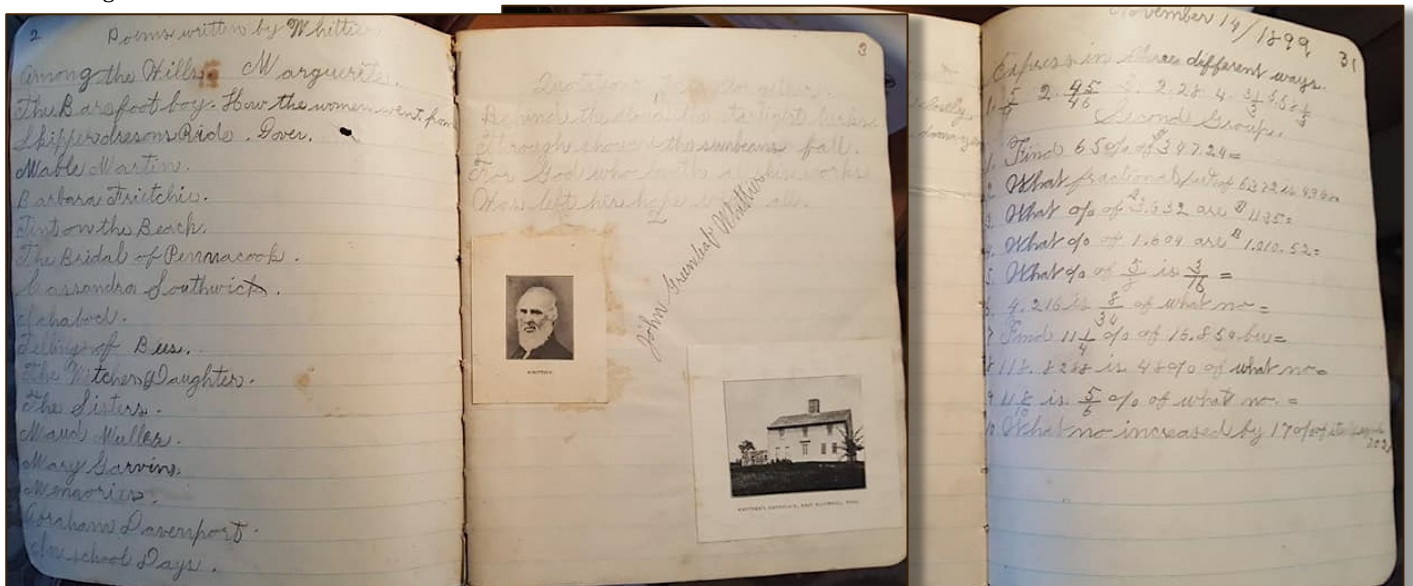 2 Poems written by Whittier
Among the Hills. Marguerite.
The Barefoot boy. How the women went from
Skipper Iresons Ride. Dover.
Mable Martin.
Barbara Frietchie.
Tent on the Beach.
The Bridal of Pennacook.
Cassandra Southwick.
Ichabod.
Telling of Bees.
The Witches Daughter.
The Sisters.
Maud Muller.
Mary Garvin.
Memories.
Abraham Davenport.
In school Days.
3
Behind the cloud the starlight lurks
Through showers the sunbeams fall.
For God who loveth all his works
Has left his hope with all.
John Greenleaf Whittier
WHITTIER
WHITTIER'S BIRTHPLACE, EAST HAVERHILL, MASS.
November 14/1899 31
Express in three different ways.
Second Group.
1. Find 65% of $347.24=
2. What fractional part of
3. What % of $3.632 are $1135=
4. What % of 1.604 are $1.010.52=
5. What % of is 3/16 =
6. 4.216 is 8/34 of what no=
7 Find 11 1/4 % of 16.850 bu=
8 118.8288 is 48% of what no=
9 is 5/6 % of what no. =
10 What no increased by 17% of